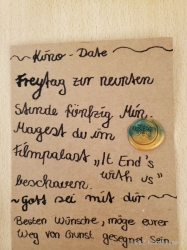 ~ Kino - Date ~
Freytag zur neunten
Stunde fünfzig Min.
Magest du im
Filmpalast „It End's
with us"
beschauen.
~ Gott sei mit dir ~
Besten Wünsche, möge eurer
Weg von Gunst gesegnet sein.